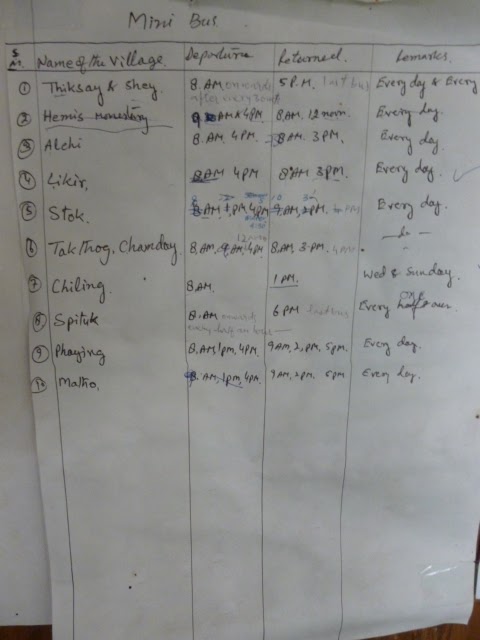 Mini Bus
S No. Name of the Village. Departure Returned. Remarks.
① Thiksay & Shey. 8.AM onwards 5 P.M. last bus Every day & Every
after every
② Hemis Monastery 4PM. 8.AM. 12 noon. Every day.
③ Alchi 8.AM. 4PM. 8AM. 3PM. Every day.
④ Likir. 8AM 4PM 8AM 3PM. Every day.
⑤ Stok. 8AM PM, 4PM 2PM. Every day.
12 noon
⑥ Takthog, Chamday. 8.AM, 4PM 8.AM, 3.PM. 4PM
⑦ Chiling. 8AM. 1 PM. Wed & Sunday.
⑧ Spituk 8.AM onwards 6 PM last bus Every half
every half an hour
⑨ Phaying 8.AM, 1PM, 4PM. 9AM, 2.PM. 5PM. Every day.
⑩ Matho. 8.AM, 1PM, 4PM. 9AM, 2PM. 5PM Every day.